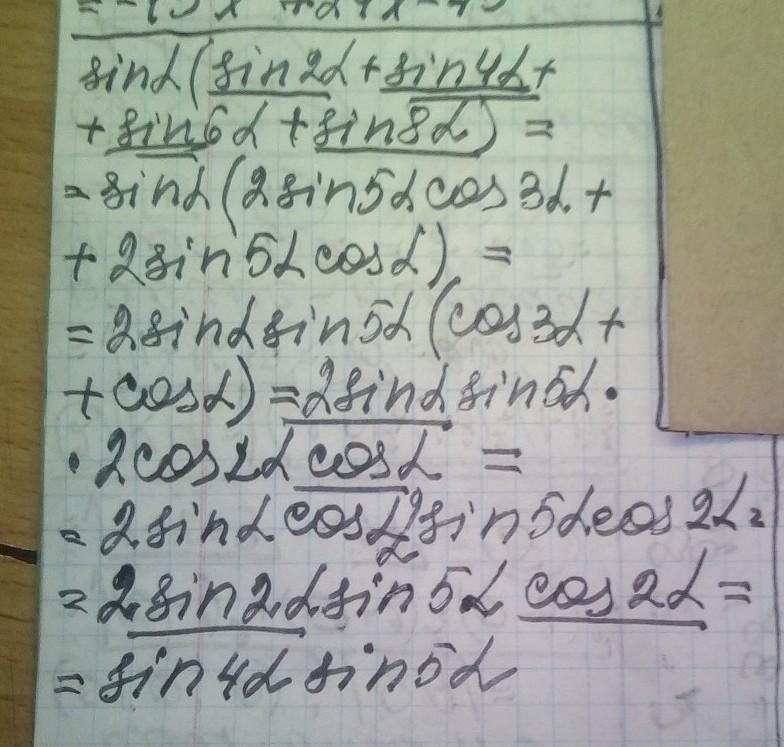 = -45x² + 27x - 45
sinα(sin2α + sin4α +
+ sin6α + sin8α) =
= sinα(2sin5α cos3α +
+ 2sin5α cosα) =
= 2sinα sin5α(cos3α +
+ cosα) = 2sinα sin5α ·
· 2cos2α cosα =
= 2sinα cosα 2 sin5α cos2α =
= 2sin2α sin5α cos2α =
= sin4α sin5α